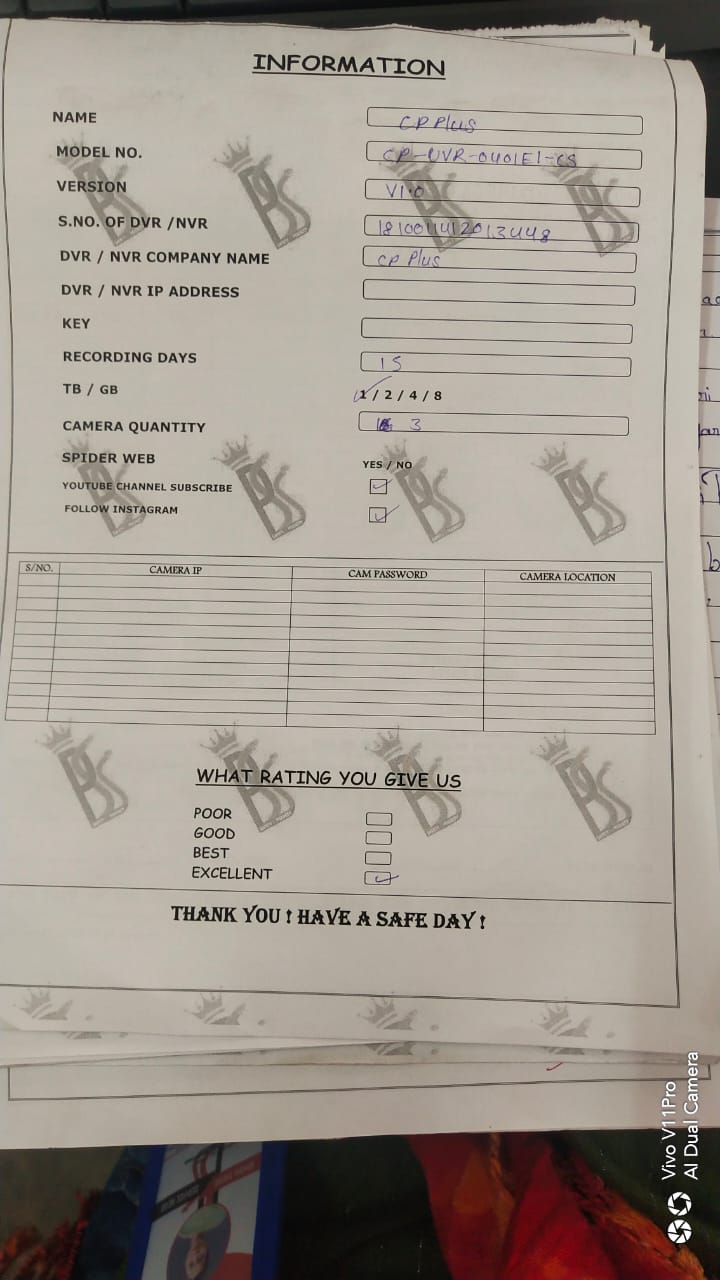 INFORMATION
NAME CP Plus
MODEL NO. CP-UVR-0401E1-CS
VERSION V1.0
S.NO. OF DVR /NVR
DVR / NVR COMPANY NAME CP Plus
DVR / NVR IP ADDRESS
KEY
RECORDING DAYS 15
TB / GB 1 / 2 / 4 / 8
CAMERA QUANTITY 3
SPIDER WEB YES / NO
YOUTUBE CHANNEL SUBSCRIBE
FOLLOW INSTAGRAM
S/NO. CAMERA IP CAM PASSWORD CAMERA LOCATION
WHAT RATING YOU GIVE US
POOR
GOOD
BEST
EXCELLENT
THANK YOU ! HAVE A SAFE DAY !
Vivo V11Pro
AI Dual Camera